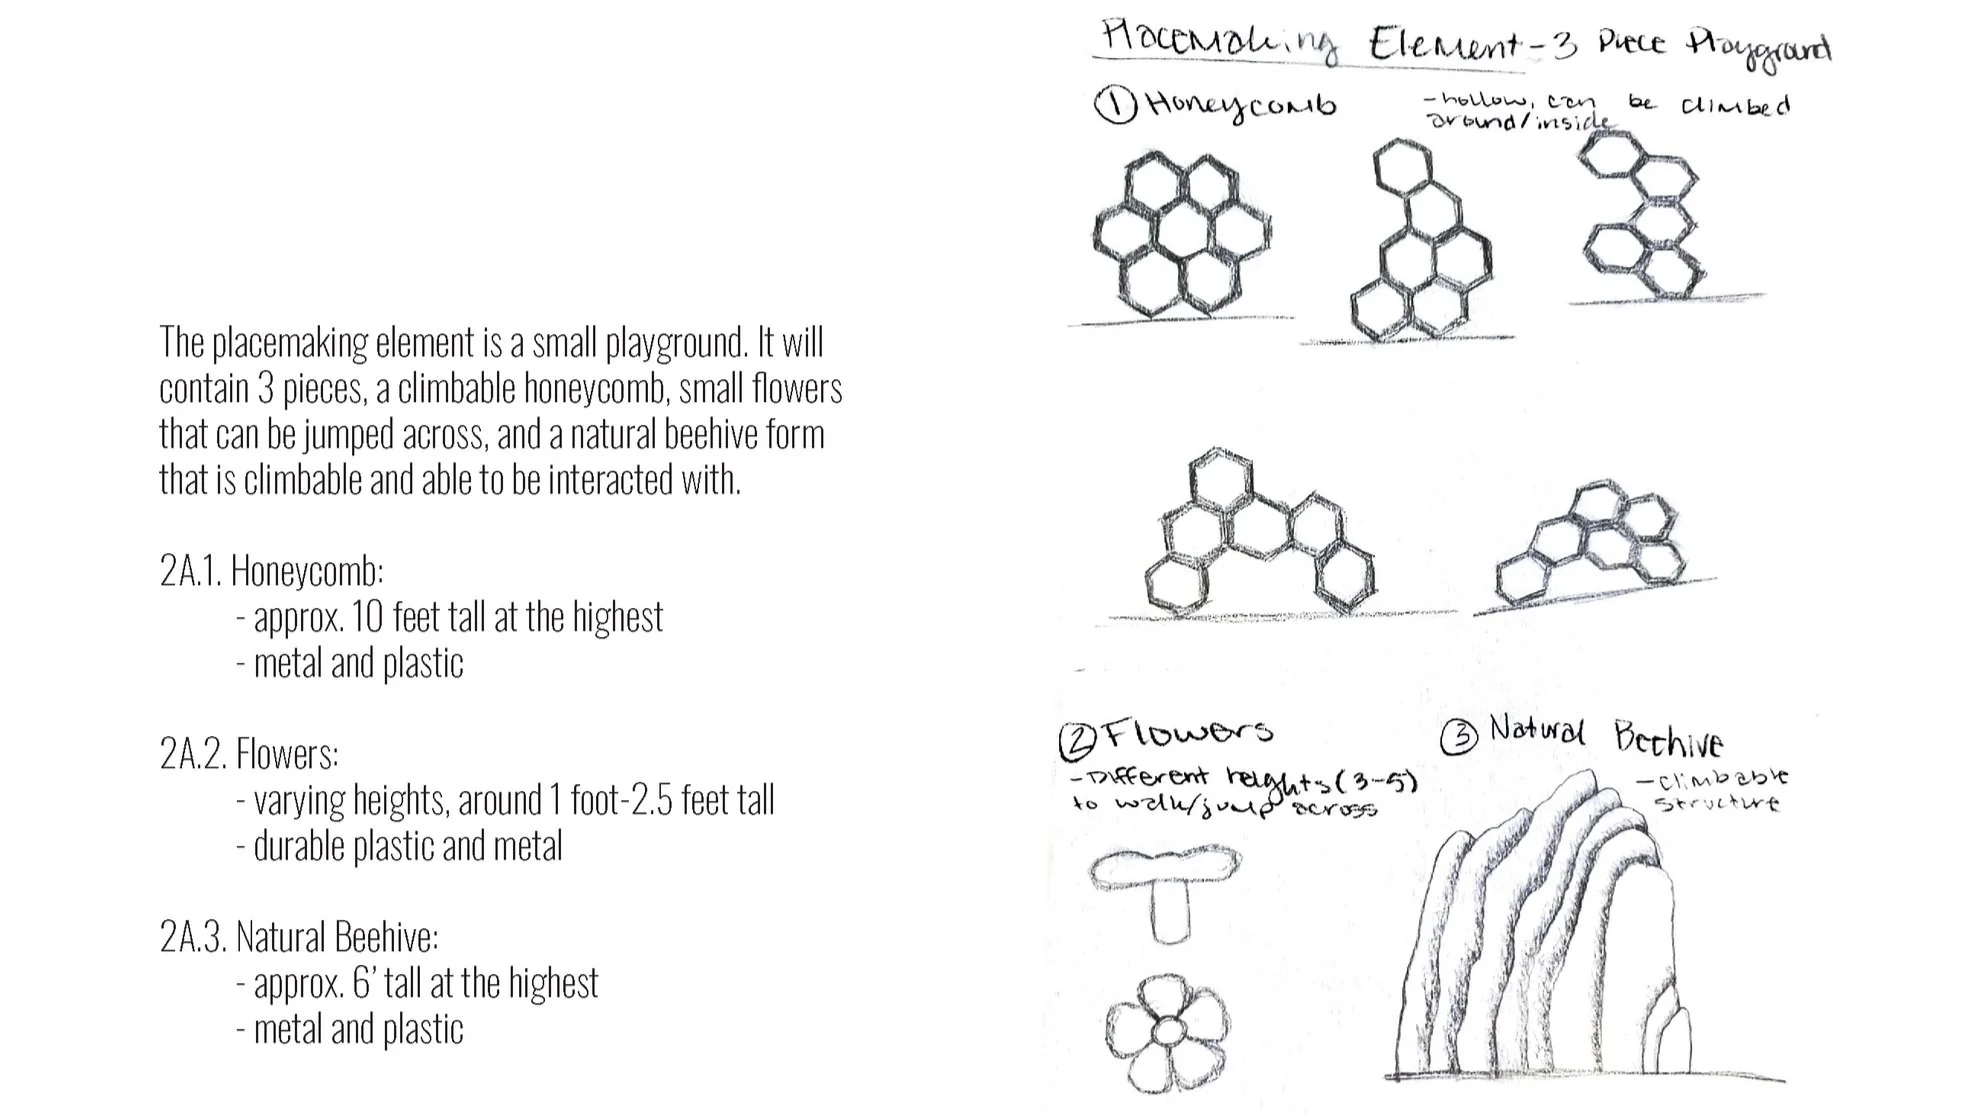 The placemaking element is a small playground. It will
contain 3 pieces, a climbable honeycomb, small flowers
that can be jumped across, and a natural beehive form
that is climbable and able to be interacted with.
2A.1. Honeycomb:
- approx. 10 feet tall at the highest
- metal and plastic
2A.2. Flowers:
- varying heights, around 1 foot-2.5 feet tall
- durable plastic and metal
2A.3. Natural Beehive:
- approx. 6' tall at the highest
- metal and plastic
Placemaking Element - 3 Piece Playground
① Honeycomb
- hollow, can be climbed
around/inside
② Flowers
- Different heights (3-5)
to walk/jump across
③ Natural Beehive
- climbable
structure